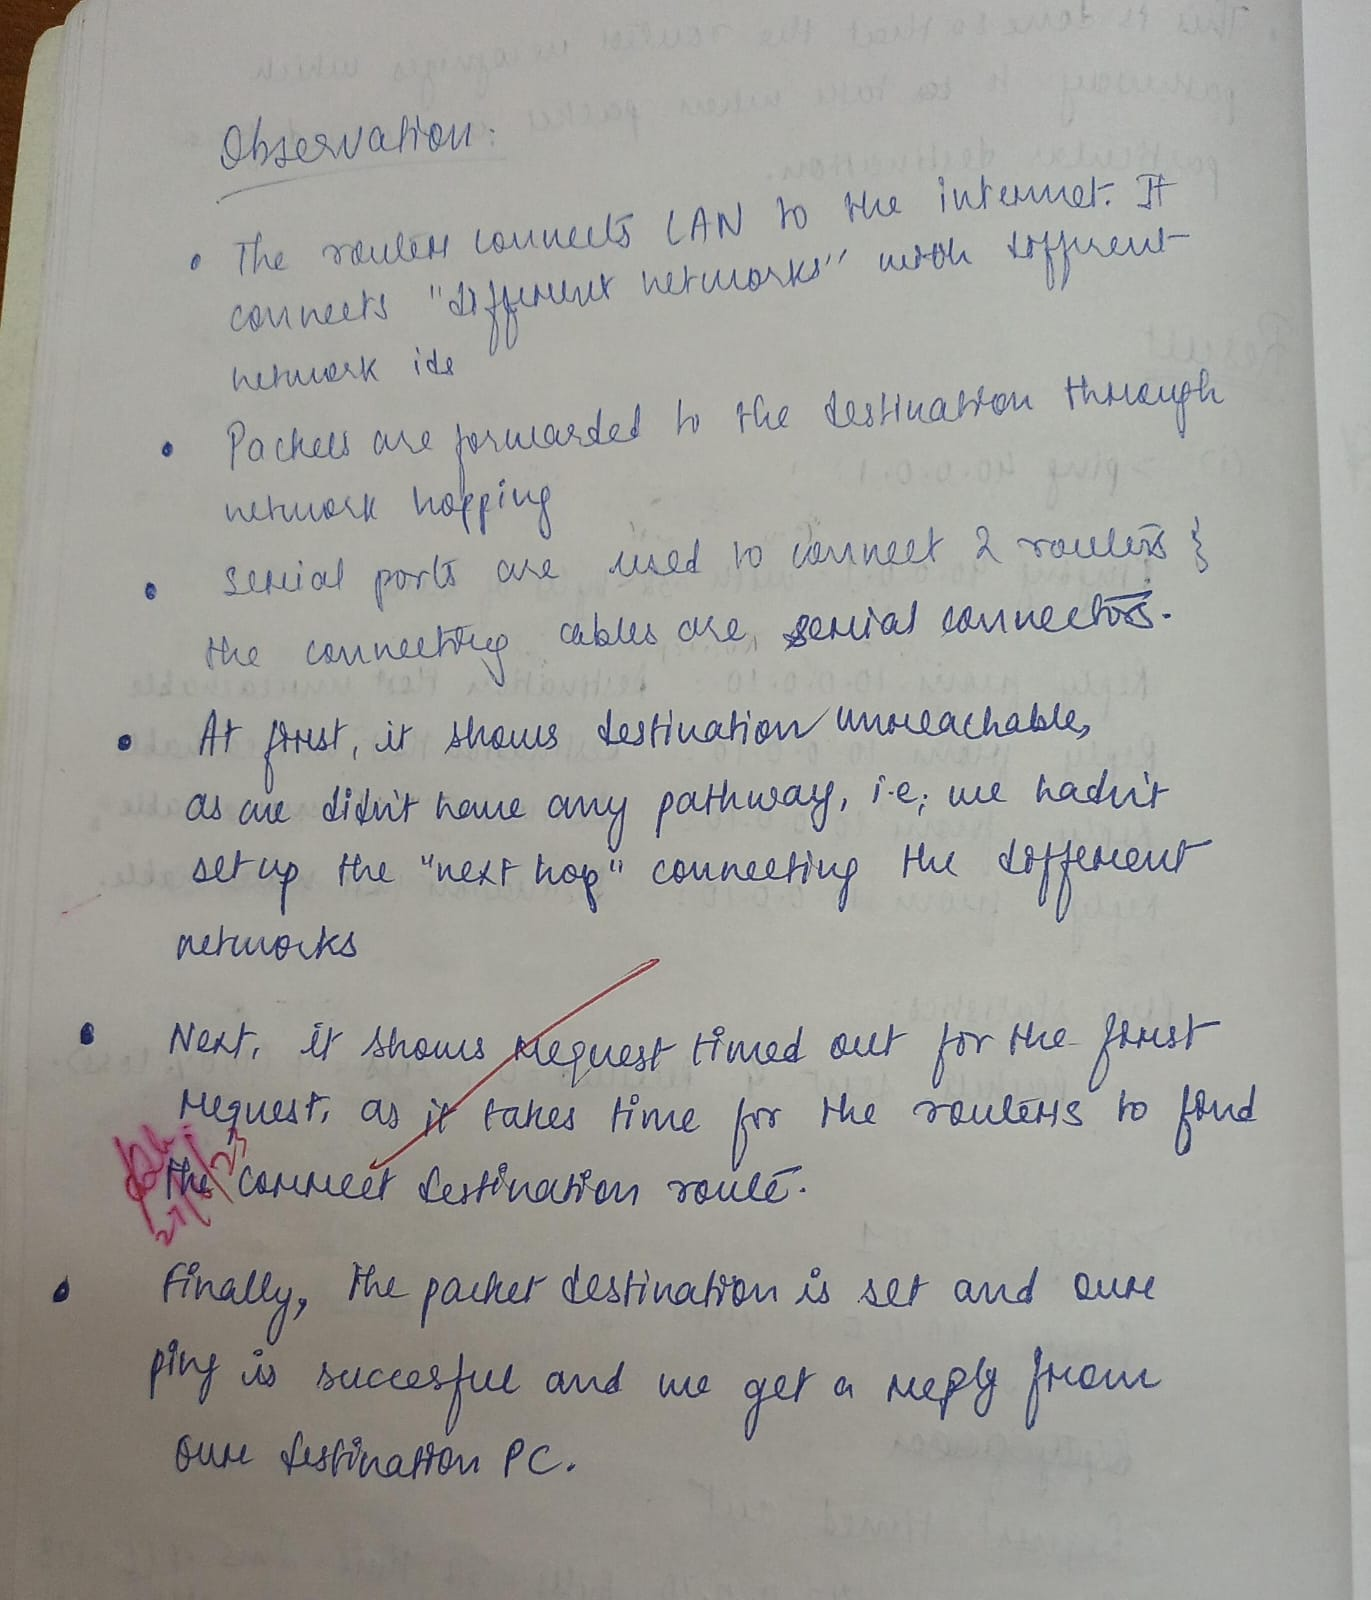 Observation:
• The routers connects LAN to the internet. It
connects "different networks" with different
network ids
• Packets are forwarded to the destination through
network hopping
• Serial ports are used to connect 2 routers &
the connecting cables are serial connectors.
• At first, it shows destination unreachable,
as we didn't have any pathway, i.e; we hadn't
set up the "next hop" connecting the different
networks
• Next, it shows request timed out for the first
request, as it takes time for the routers to find
the correct destination route.
• Finally, the packet destination is set and our
ping is succesful and we get a reply from
our destination PC.